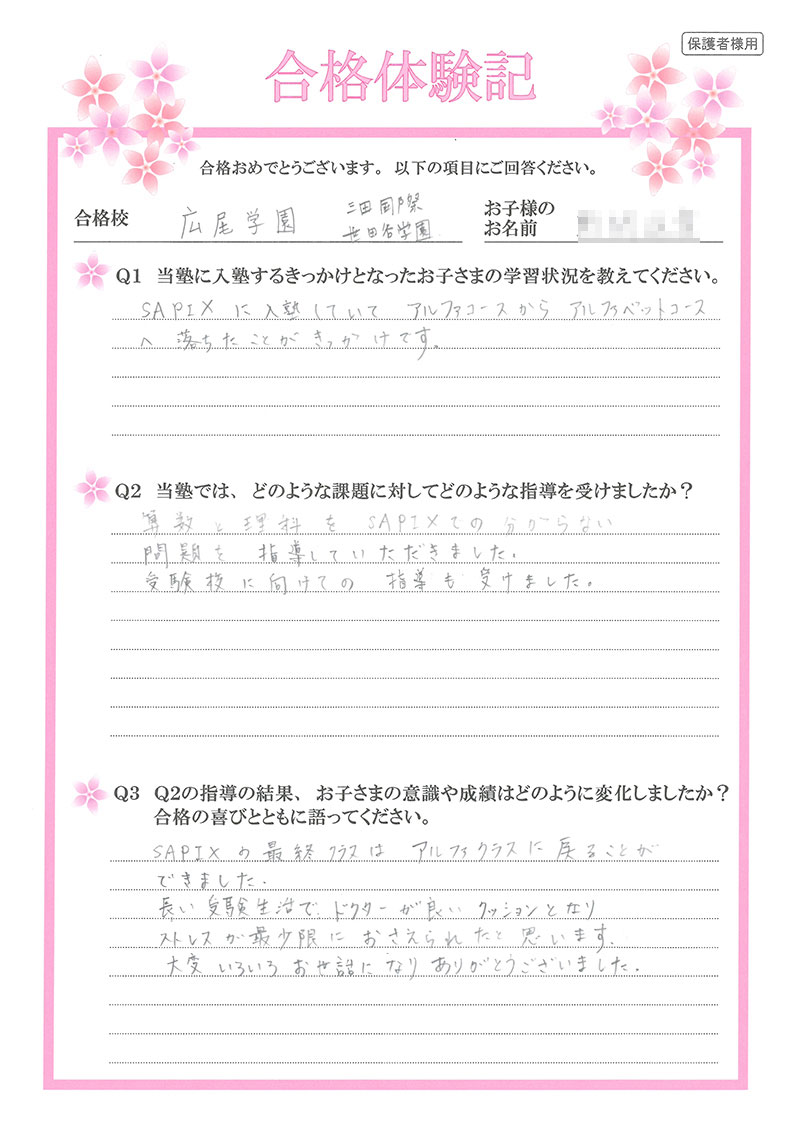 保護者様用
合格体験記
合格おめでとうございます。以下の項目にご回答ください。
合格校 広尾学園 三田国際 世田谷学園
お子様のお名前
Q1 当塾に入塾するきっかけとなったお子さまの学習状況を教えてください。
SAPIXに入塾していて アルファコースから アルファベットコース
へ 落ちたことがきっかけです。
Q2 当塾では、どのような課題に対してどのような指導を受けましたか？
算数と理科を SAPIXでの分からない
問題を 指導していただきました.
受験校に向けての 指導も受けました。
Q3 Q2の指導の結果、お子さまの意識や成績はどのように変化しましたか？
合格の喜びとともに語ってください。
SAPIXの最終クラスは アルファクラスに戻ることが
できました.
長い受験生活で、ドクターが良いクッションとなり
ストレスが最少限におさえられたと思います.
大変いろいろお世話になりありがとうございました.